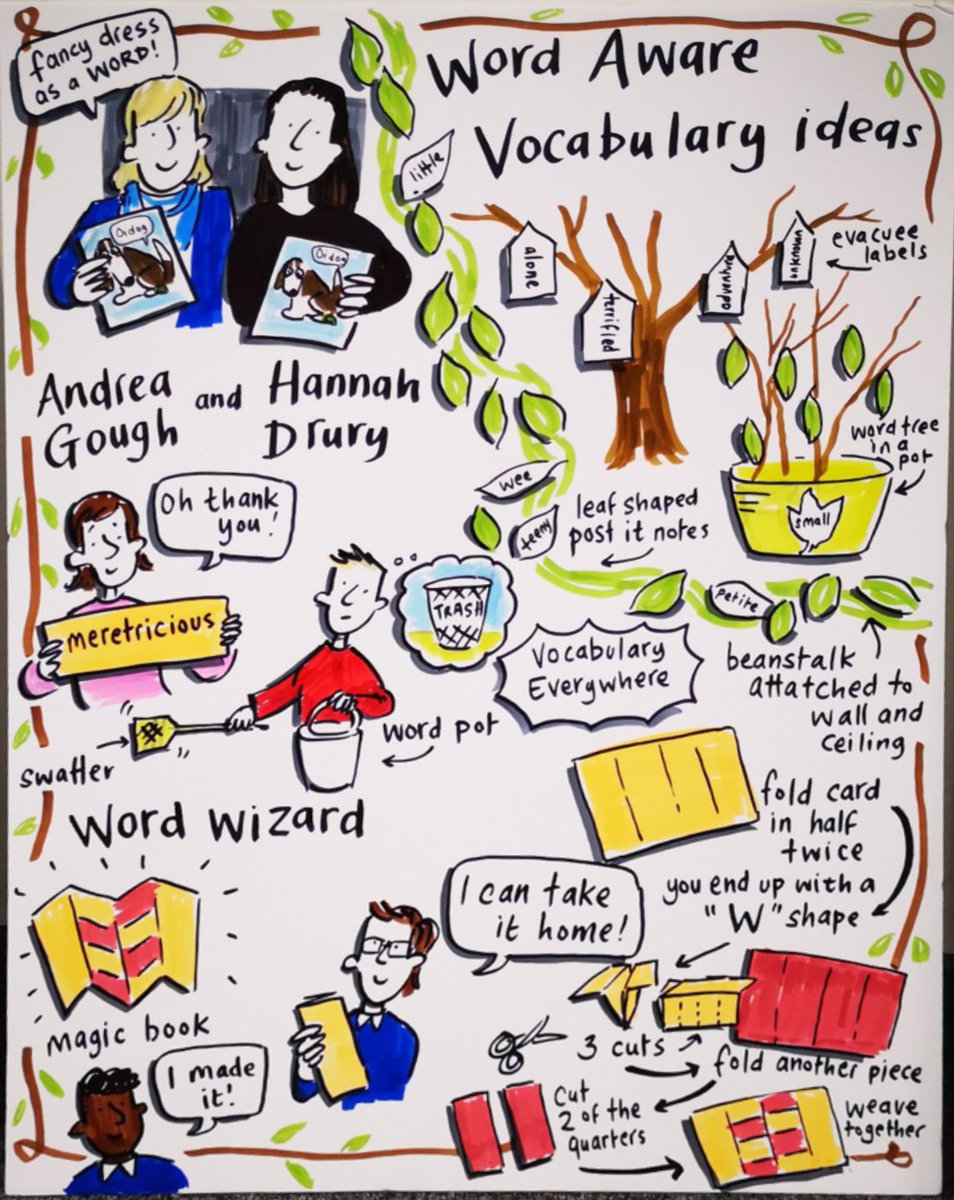 fancy dress
as a WORD!
Word Aware
Vocabulary ideas
Oidog
Oidog
little
alone
terrified
adventure
unknown
evacuee
labels
Andrea
Gough
and
Hannah
Drury
word tree
in a
pot
small
wee
teeny
leaf shaped
post it notes
petite
Oh thank
you!
meretricious
TRASH
Vocabulary
Everywhere
beanstalk
attatched to
wall and
ceiling
swatter
word pot
Word wizard
fold card
in half
twice
you end up with a
"W" shape
I can take
it home!
magic book
I made
it!
3 cuts
fold another piece
Cut
2 of the
quarters
weave
together